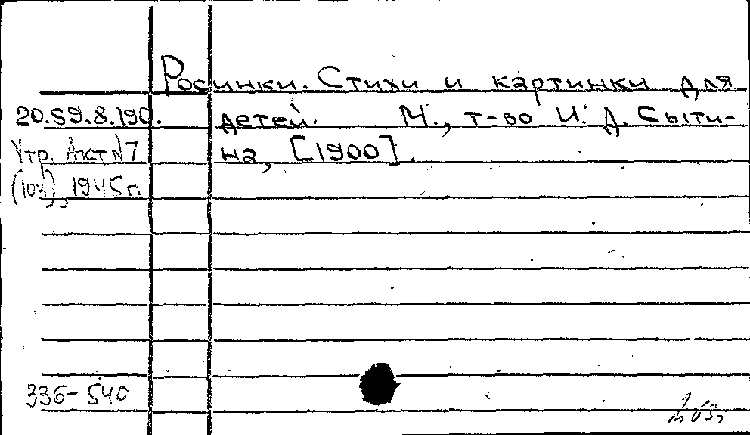 Росинки. Стихи и картинки для
20.59.8.190. детей. М., т-во И. Д. Сыти-
Утр. Акт №7 на, [1900].
1945 г.
336-540